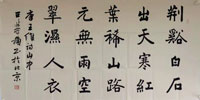 荆谿白石
出天寒紅
葉稀山路
元無雨空
翠濕人衣
唐王維詩山中
於北京